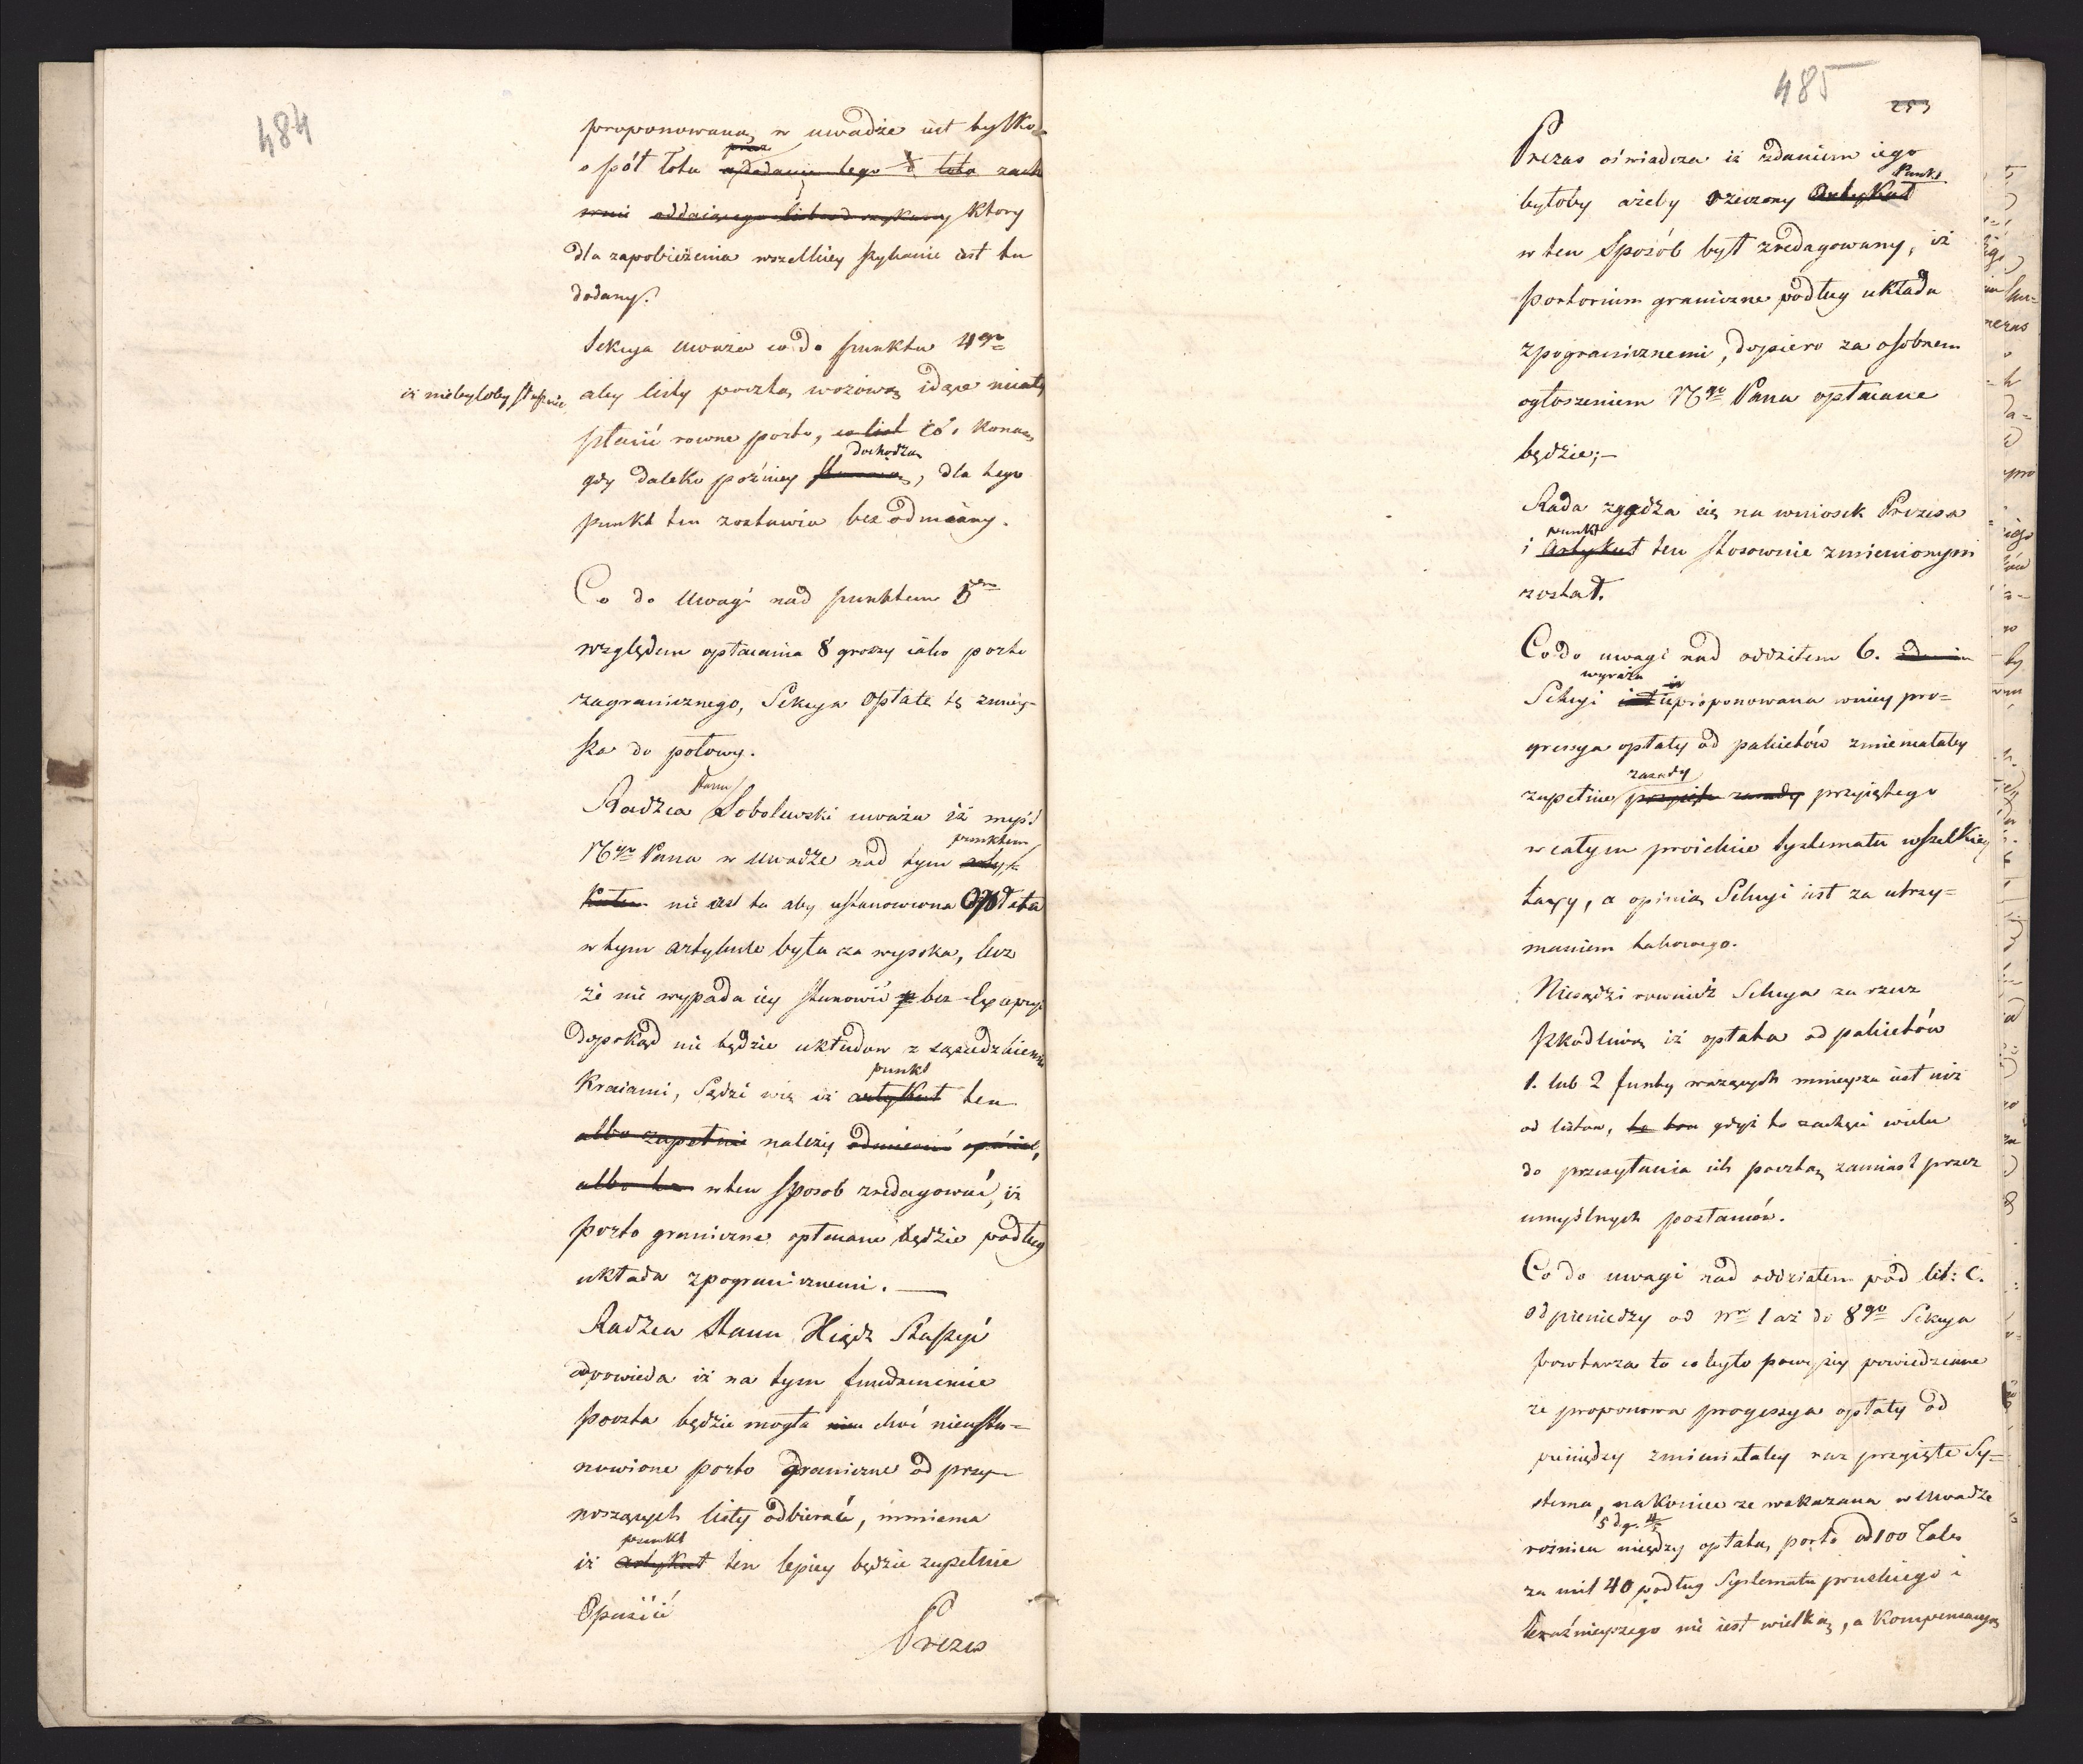 484
proponowaną w uwadze iest tylko
o pół łota
przez
który
dla zapobieżenia wszelkiey
iest tu
dodany.
Sekcya uważa co do punktu 4go
iż niebyłoby słusznie
aby listy pocztą wozową idące miały
płacić rowne porto, co i konną
dochodzą
gdy daleko pożniey , dla tego
punkt ten zostawia bez odmiany.
Co do Uwagi nad punktem 5em
względem opłacania 8 groszy iako porto
zagranicznego, Sekcya Opłatę tę zmniey-
sza do połowy.
Stanu
Radzca Sobolewski uważa iż myśl
punktem
NGo Pana w Uwadze nad tym arty-
kułem nie iest ta aby ustanowiona Opłata
w tym artykule była za wysoka, lecz
że nie wypada iey stanowić bez
dopokąd nie będzie układow z sąsiedzkiemi
punkt
Kraiami, Sądzi więc iż artykuł ten
albo zupełnie należy odmienić opuścić,
albo też w ten sposob zredagować, iż
porto graniczne opłacane będzie podług
układu z pogranicznemi. —
Radzca Stanu Xiądz Staszyc
odpowieda iż na tym fundamencie
poczta będzie mogła choć nieusta-
nowione porto graniczne od przy-
noszących listy odbierać, mniema
punkt
iż artykuł ten lepiey będzie zupełnie
Opuścić
Prezes
485
253
Prezes oświadcza iż zdaniem iego
Punkt
byłoby ażeby rzeczony Artykuł
w ten Sposób był zredagowany, iż
portorium graniczne podług układu
z pogranicznemi, dopiero za osobnem
ogłoszeniem NGo Pana opłacane
będzie;—
Rada zgadza się na wniosek Prezesa
punkt
i Artykuł ten stosownie zmienionym
został.
Co do uwagi nad oddziłem 6.
wyraża iż
Sekcyi iest proponowana w niey pro-
gressya opłaty od pakietów zmieniałaby
zasady
zupełnie przyięte zasady przyiętego
w całym proiekcie systematu wszelkiey
taxy, a opinią Sekcyi iest za utrzy-
maniem takowego.
Niesądzi rownież Sekcya za rzecz
szkodliwą iż opłata od pakietów
1. lub 2 funty ważących mnieysza iest niż
od listow, gdyż to zachęci wielu
do przesyłania ich pocztą zamiast przez
umyślnych posłańców.
Co do uwagi nad oddziałem pod lit: C.
od pieniedzy od Nro 1 aż do 8go Sekcya
powtarza to co było powyżey powiedziane
że proponowa progessya opłaty od
pieniędzy zmieniałaby raz przyięte Sy-
stema, nakoniec że wskazana w Uwadze
5 d. gr.
rożnica między opłatą porto od 100 Tal.
za mil 40 podług Systematu pruskiego i
teraźnieyszego nie iest wielką, a Kompensacyą